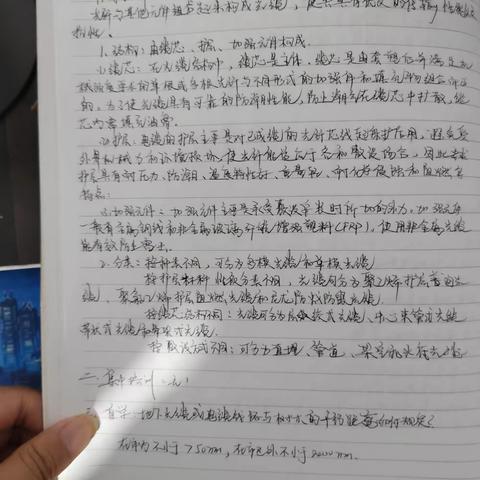 光纤与其他元件组合起来构成光缆，使其具有优良的传输性能及机
械性。
1. 结构：由缆芯、护层、加强元件构成。
(1)缆芯：在光缆结构中，缆芯是主体，缆芯是由
机械强度要求的单根或多根光纤与不同形式的加强件和填充物组合而
的。为了使光缆具有可靠的防潮性能，防止潮气在缆芯中扩散，缆
芯内需填充油膏。
(2)护层：光缆的护层主要是对已成缆的光纤芯线起保护作用，避免受
外界机械力和环境损坏，使光纤能适应于各种敷设场合，因此要求
护层具有耐压力、防潮、温度特性好、重量轻、耐化学侵蚀和阻燃等
特点：
(3)加强元件：加强元件主要是承受敷设安装时所加的外力。加强元件
一般有金属钢丝和非金属玻璃纤维增强塑料(FRP)，使用非金属光缆
能有效防止雷击。
2. 分类：按种类不同，可分为多模光缆和单模光缆
按护层材料性能分类不同，光缆可分为聚乙烯护层普通光
缆、聚氯乙烯护层阻燃光缆和尼龙防蚁防鼠光缆。
按缆芯结构不同：光缆可分为层绞式光缆、中心束管式光缆
带状式光缆和骨架式光缆。
按敷设方式不同：可分为直埋、管道、架空和水底光缆
二、集中培训：无！
三、自学：地下光缆或电缆线路与树木的平行距离如何规定？
在市内不小于750mm，在市区外不小于2000mm.